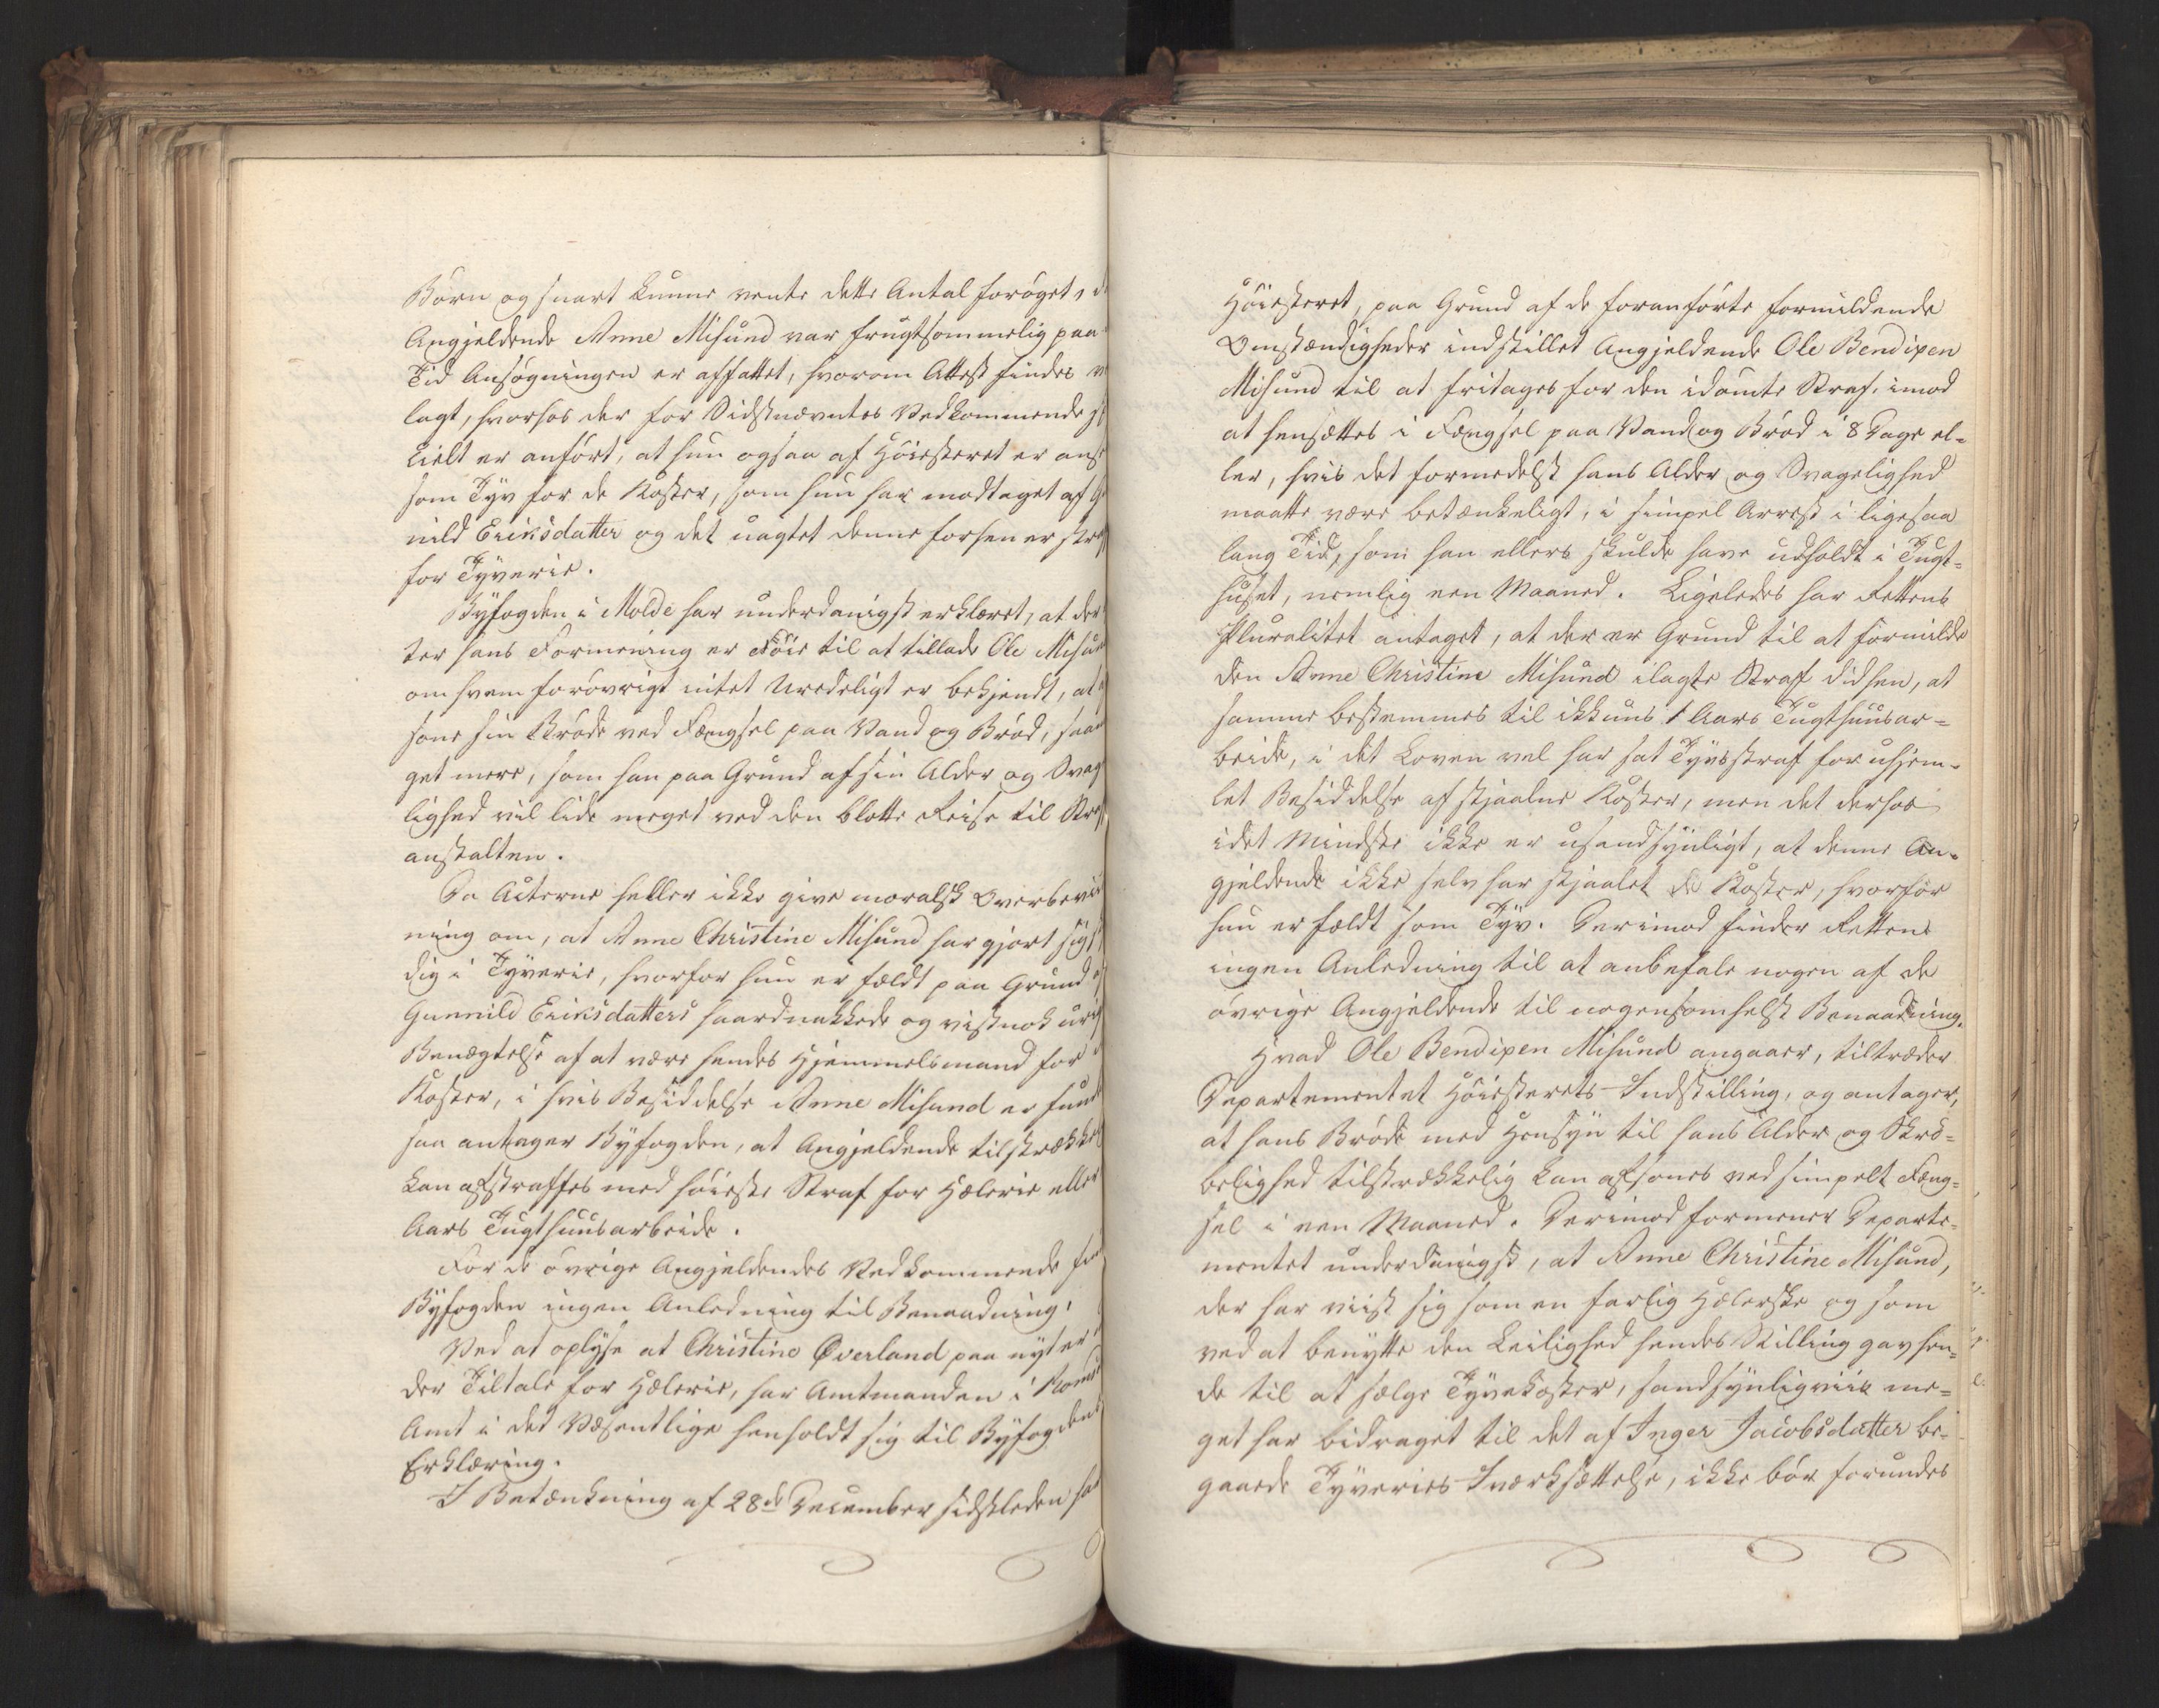 Børn og snart kunne vente dette Antal forøget, d
Angjeldende Anne Misund var frugtsommelig paa
Tid Ansøgningen er affattet, hvorom Attest findes v
lagt, hvorhos der for Sidstnævntes Vedkommende sp
cielt er anført, at hun ogsaa af Høiesteret er anse
som Tyv for de Koster, som hun har modtaget af G
nild Eriksdatter og det uagtet denne forhen er straf
for Tyverie.
Byfogden i Molde har underdanigst erklæret, at der
ter hans Formening er Føie til at tillade Ole Misun
om hvem forøvrigt intet Uredeligt er bekjendt, at
sone sin Brøde ved Fængsel paa Vand og Brød, saa
get mere, som han paa Grund af sin Alder og Svag
lighed vil lide meget ved den blotte Reise til Straf
anstalten.
Da Acterne heller ikke give moralsk Overbevis
ning om, at Anne Christine Misund har gjort sig s
dig i Tyverie, hvorfor hun er fældt paa Grund af
Gunnild Eriksdatters haardnakkede og vistnok urig
Benægtelse af at være hendes Hjemmelsmand for d
Koster, i hvis Besiddelse Anne Misund er fund
saa antager Byfogden, at Angjeldende tilstrækkel
kan afstraffes med høieste Straf for Hælerie eller
Aars Tugthuusarbeide.
For de øvrige Angjeldendes Vedkommende fin
Byfogden ingen Anledning til Benaadning.
Ved at oplyse at Christine Øverland paa nyt er
der Tiltale for Hælerie, har Amtmanden i Roms
Amt i det Væsentlige henholdt sig til Byfogdens
Erklæring.
I Betænkning af 28de December sidstleden har
Høiesteret, paa Grund af de foranførte formildende
Omstændigheder indstillet Angjeldende Ole Bendixen
Misund til at fritages for den idømte Straf, imod
at hensættes i Fængsel paa Vand og Brød i 8 Dage el-
ler, hvis det formedelst hans Alder og Svagelighed
maatte være betænkeligt, i simpel Arrest i ligesaa
lang Tid, som han ellers skulde have udholdt i Tugt-
huset, nemlig een Maaned. Ligeledes har Rettens
Pluralitet antaget, at der er Grund til at formilde
den Anne Christine Misund ilagte Straf didhen, at
samme bestemmes til ikkuns 1 Aars Tugthuusar-
beide, i det Loven vel har sat Tyvsstraf for uhjem-
let Besiddelse af stjaalne Koster, men det derhos
idet Mindste ikke er usandsynligt, at denne An-
gjeldende ikke selv har stjaalet de Koster, hvorfor
hun er fældt som Tyv. Derimod finder Retten
ingen Anledning til at anbefale nogen af de
øvrige Angjeldende til nogensomhelst Benaadning.
Hvad Ole Bendixen Misund angaaer, tiltræder
Departementet Høiesterets Indstilling, og antager,
at hans Brøde med Hensyn til hans Alder og Skrø-
belighed tilstrækkelig kan afsones ved simpelt Fæng-
sel i een Maaned. Derimod formener Departe-
mentet underdanigst, at Anne Christine Misund,
der har viist sig som en farlig Hælerske og som
ved at benytte den Leilighed hendes Stilling gav hen-
de til at sælge Tyvekoster, sandsynligviis me-
get har bidraget til det af Inger Jacobsdatter be-
gaaede Tyveries Iværksættelse, ikke bør forundes